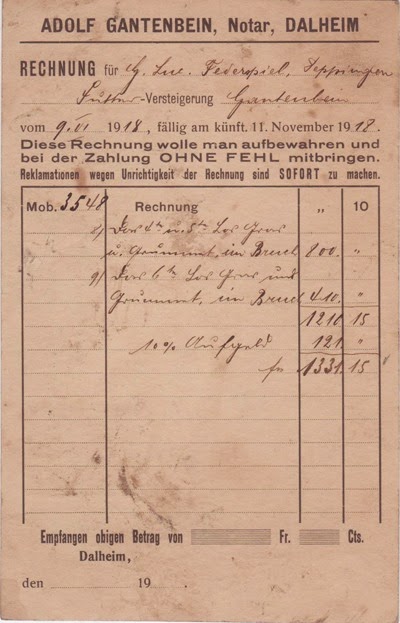 ADOLF GANTENBEIN, Notar, DALHEIM
RECHNUNG für Luc. Federspiel, Peppingen
Futter-Versteigerung Gantenbein
vom 9. VI 1918, fällig am künft. 11. November 1918.
Diese Rechnung wolle man aufbewahren und
bei der Zahlung OHNE FEHL mitbringen.
Reklamationen wegen Unrichtigkeit der Rechnung sind SOFORT zu machen.
Mob. 3548 Rechnung " 10
8) Das 4te u. 5te Los Gras
u. Grummet, im Bruch 800. "
9) Das 6te Los Gras und
Grummet, im Bruch 410. "
1210 15
10% Aufgeld 121 "
fr 1331. 15
Empfangen obigen Betrag von Fr. Cts.
Dalheim,
den 19